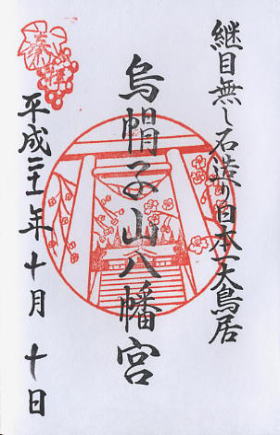 継目無し石造り日本一大鳥居
奉拝
烏帽子山八幡宮
平成二十一年十月十日